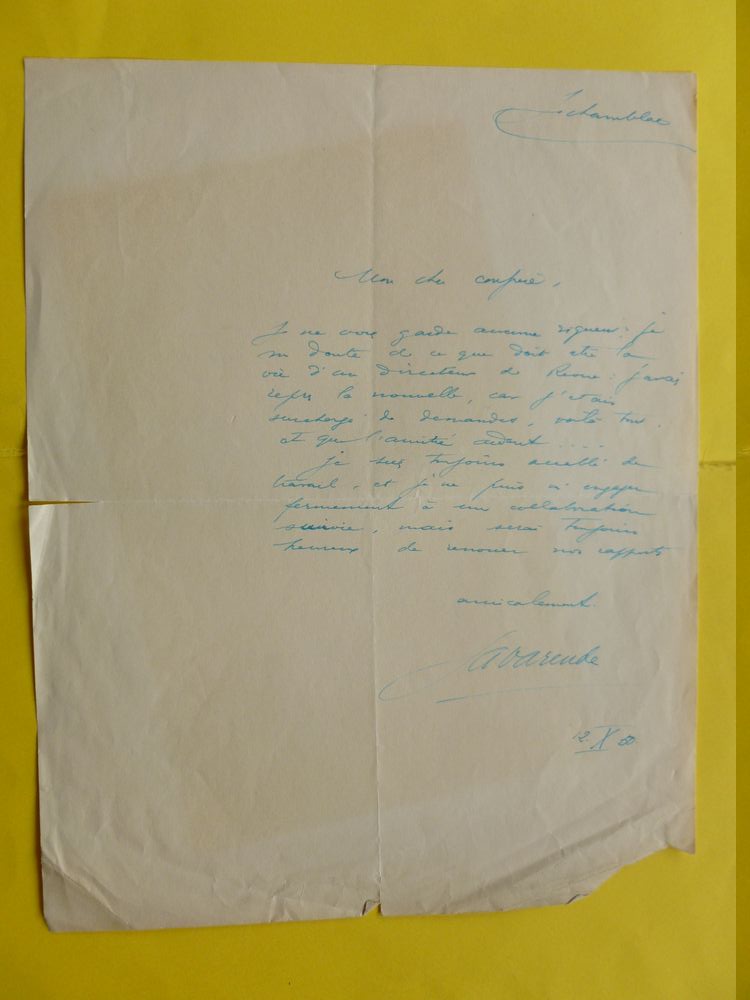 Le chamblac
Mon cher confrère,
Je ne vous garde aucune rigueur : je
me doute de ce que doit être la
vie d'un directeur de Revue : j'avais
repris la nouvelle, car j'étais
surchargé de demandes, voilà tout.
et que l'amitié ....
je suis toujours accablé de
travail, et je ne puis m'engager
fermement à une collaboration
suivie, mais serai toujours
heureux de renouer nos rapports
amicalement.
La Varende
12 X 50